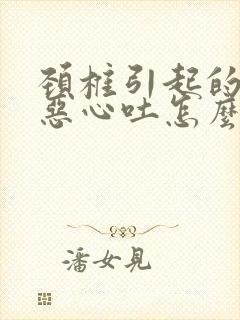 頚椎引起的
惡心吐怎麼
潘女見